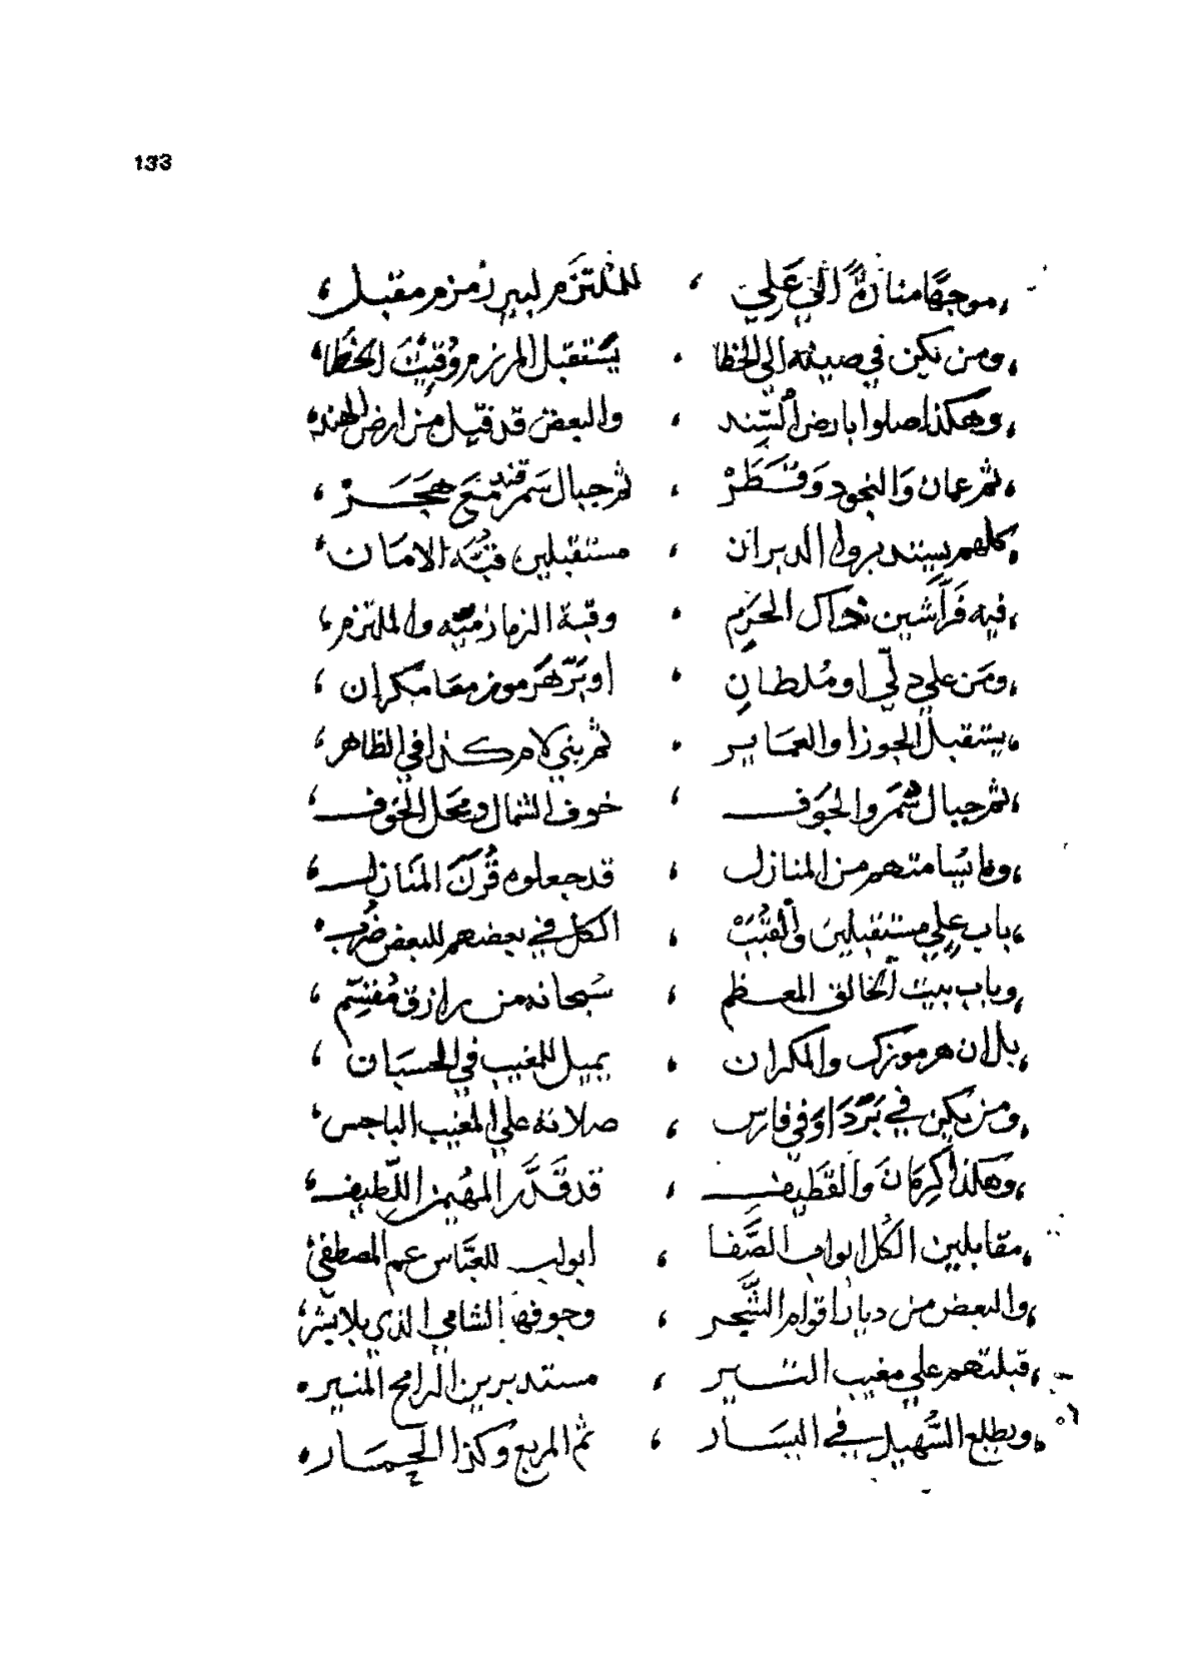 133
موجهًا منارةً الى عَلِي ، للمُلتزَم لبير زمزم مقبل ،
ومن يكن في صيثه الى الخطا ، يَسْتقبل المرزم وُقيتَ الخَطا ،
وهكذا صلوا بارض السّند ، والبعض قد قيل من ارض الهند ،
ثم عمان وَالنجود وَقَطَرْ ، ثم جبال سَمرقند مَعْ هَجَرْ ،
كلهم يستدبروا الدبران ، مستقبلين قبُّة الامَان ،
فيه فَرآشين ذاك الحَرَم ، وقبة الزمازميّه والملتزم ،
ومَن علي دلّي او مُلطانِ ، او بَرّ هَرموز معَا مكران ،
يستقبل الجوزا والعمَاير ، ثم بني لام كذا في الظاهر ،
ثم جبال شمَّر والجَوف ، خوف الشمال ومَحل الخَوف ،
وما يُسامتهم من المنازل ، قد جعلوه قُرنَ المَنَازل ،
باب علي مستقبلين والقُبَبْ ، الكل في بعضهم للبعض ضُرب ،
وباب بيت الخالق المعظم ، سُبحانه من رازق مُقسِّم ،
بلدان هرموزك والمكران ، يميل للمغيب في الحسبَان ،
ومن يكن في بَرّدَ اوَ في فارس ، صلاته علي المغيب الباجس ،
وهكذا كِرمَانَ والقَطيف ، قد قَدَّر المهيمن اللّطيف ،
مقابلين الكل ابواب الصَّفا ، ابواب للعبَّاس عم المصطفيْ
والبعض من ديار اقوام الشَّحر ، وجوفها الشامي الذي بلا بشر ،
قبلتهم علي مغيب التيـر ، مستدبرين الرامح المنير ،
ويطلع السُهيل في اليسَار ، ثم المربع وكذا الحِمَار ،